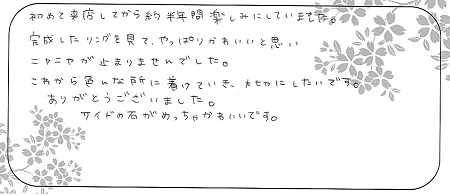 初めて来店してから約半年間楽しみにしていました。
完成したリングを見て、やっぱりかわいいと思い
ニヤニヤが止まりませんでした。
これから色んな所に着けていき、大切にしたいです。
ありがとうございました。
サイドの石がめっちゃかわいいです。